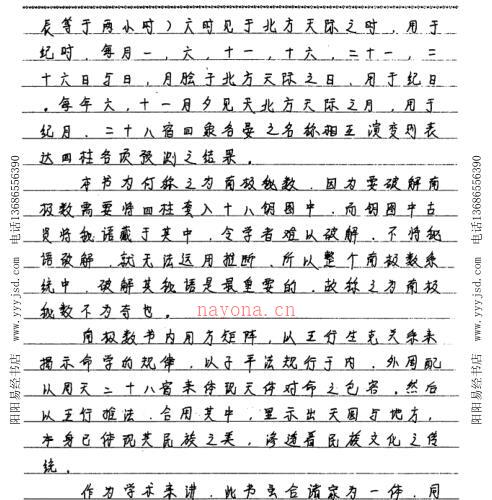 辰等于两小时）六时见于北方天际之时，用于
纪时，每月一，六，十一，十六，二十一，二
十六日与日，月胘于北方天际之日，用于纪日
。每年六，十一月夕见天北方天际之月，用于
纪月、二十八宿四象各晏之名称相互演变列表
达四柱各项预测之结果。
本书为何称之为南极秘数．因为要破解南
极数需要将四柱套入十八钥图中．而钥图中古
贤将秘语藏于其中，令学者难以破解．不将秘
语破解．就无法运用推断．所以整个南极数系
统中．破解其秘语是最重要的．故称之为南极
秘数不为奇也。
南极数书内用方矩阵，以五行生克关系来
揭示命学的规律，以子平法规行于内．外周配
以周天二十八宿来体现天体对命之包容．然后
以五行推法．合用其中，显示出天圆与地方，
本身已体现其民族之美，渗透着民族文化之传
统。
作为学术来讲．此书虽合诸家为一体．同
阳阳易经书店 www.yyyjsd.com 电话13686556390
阳阳易经书店 www.yyyjsd.com 电话13686556390
nayona.cn